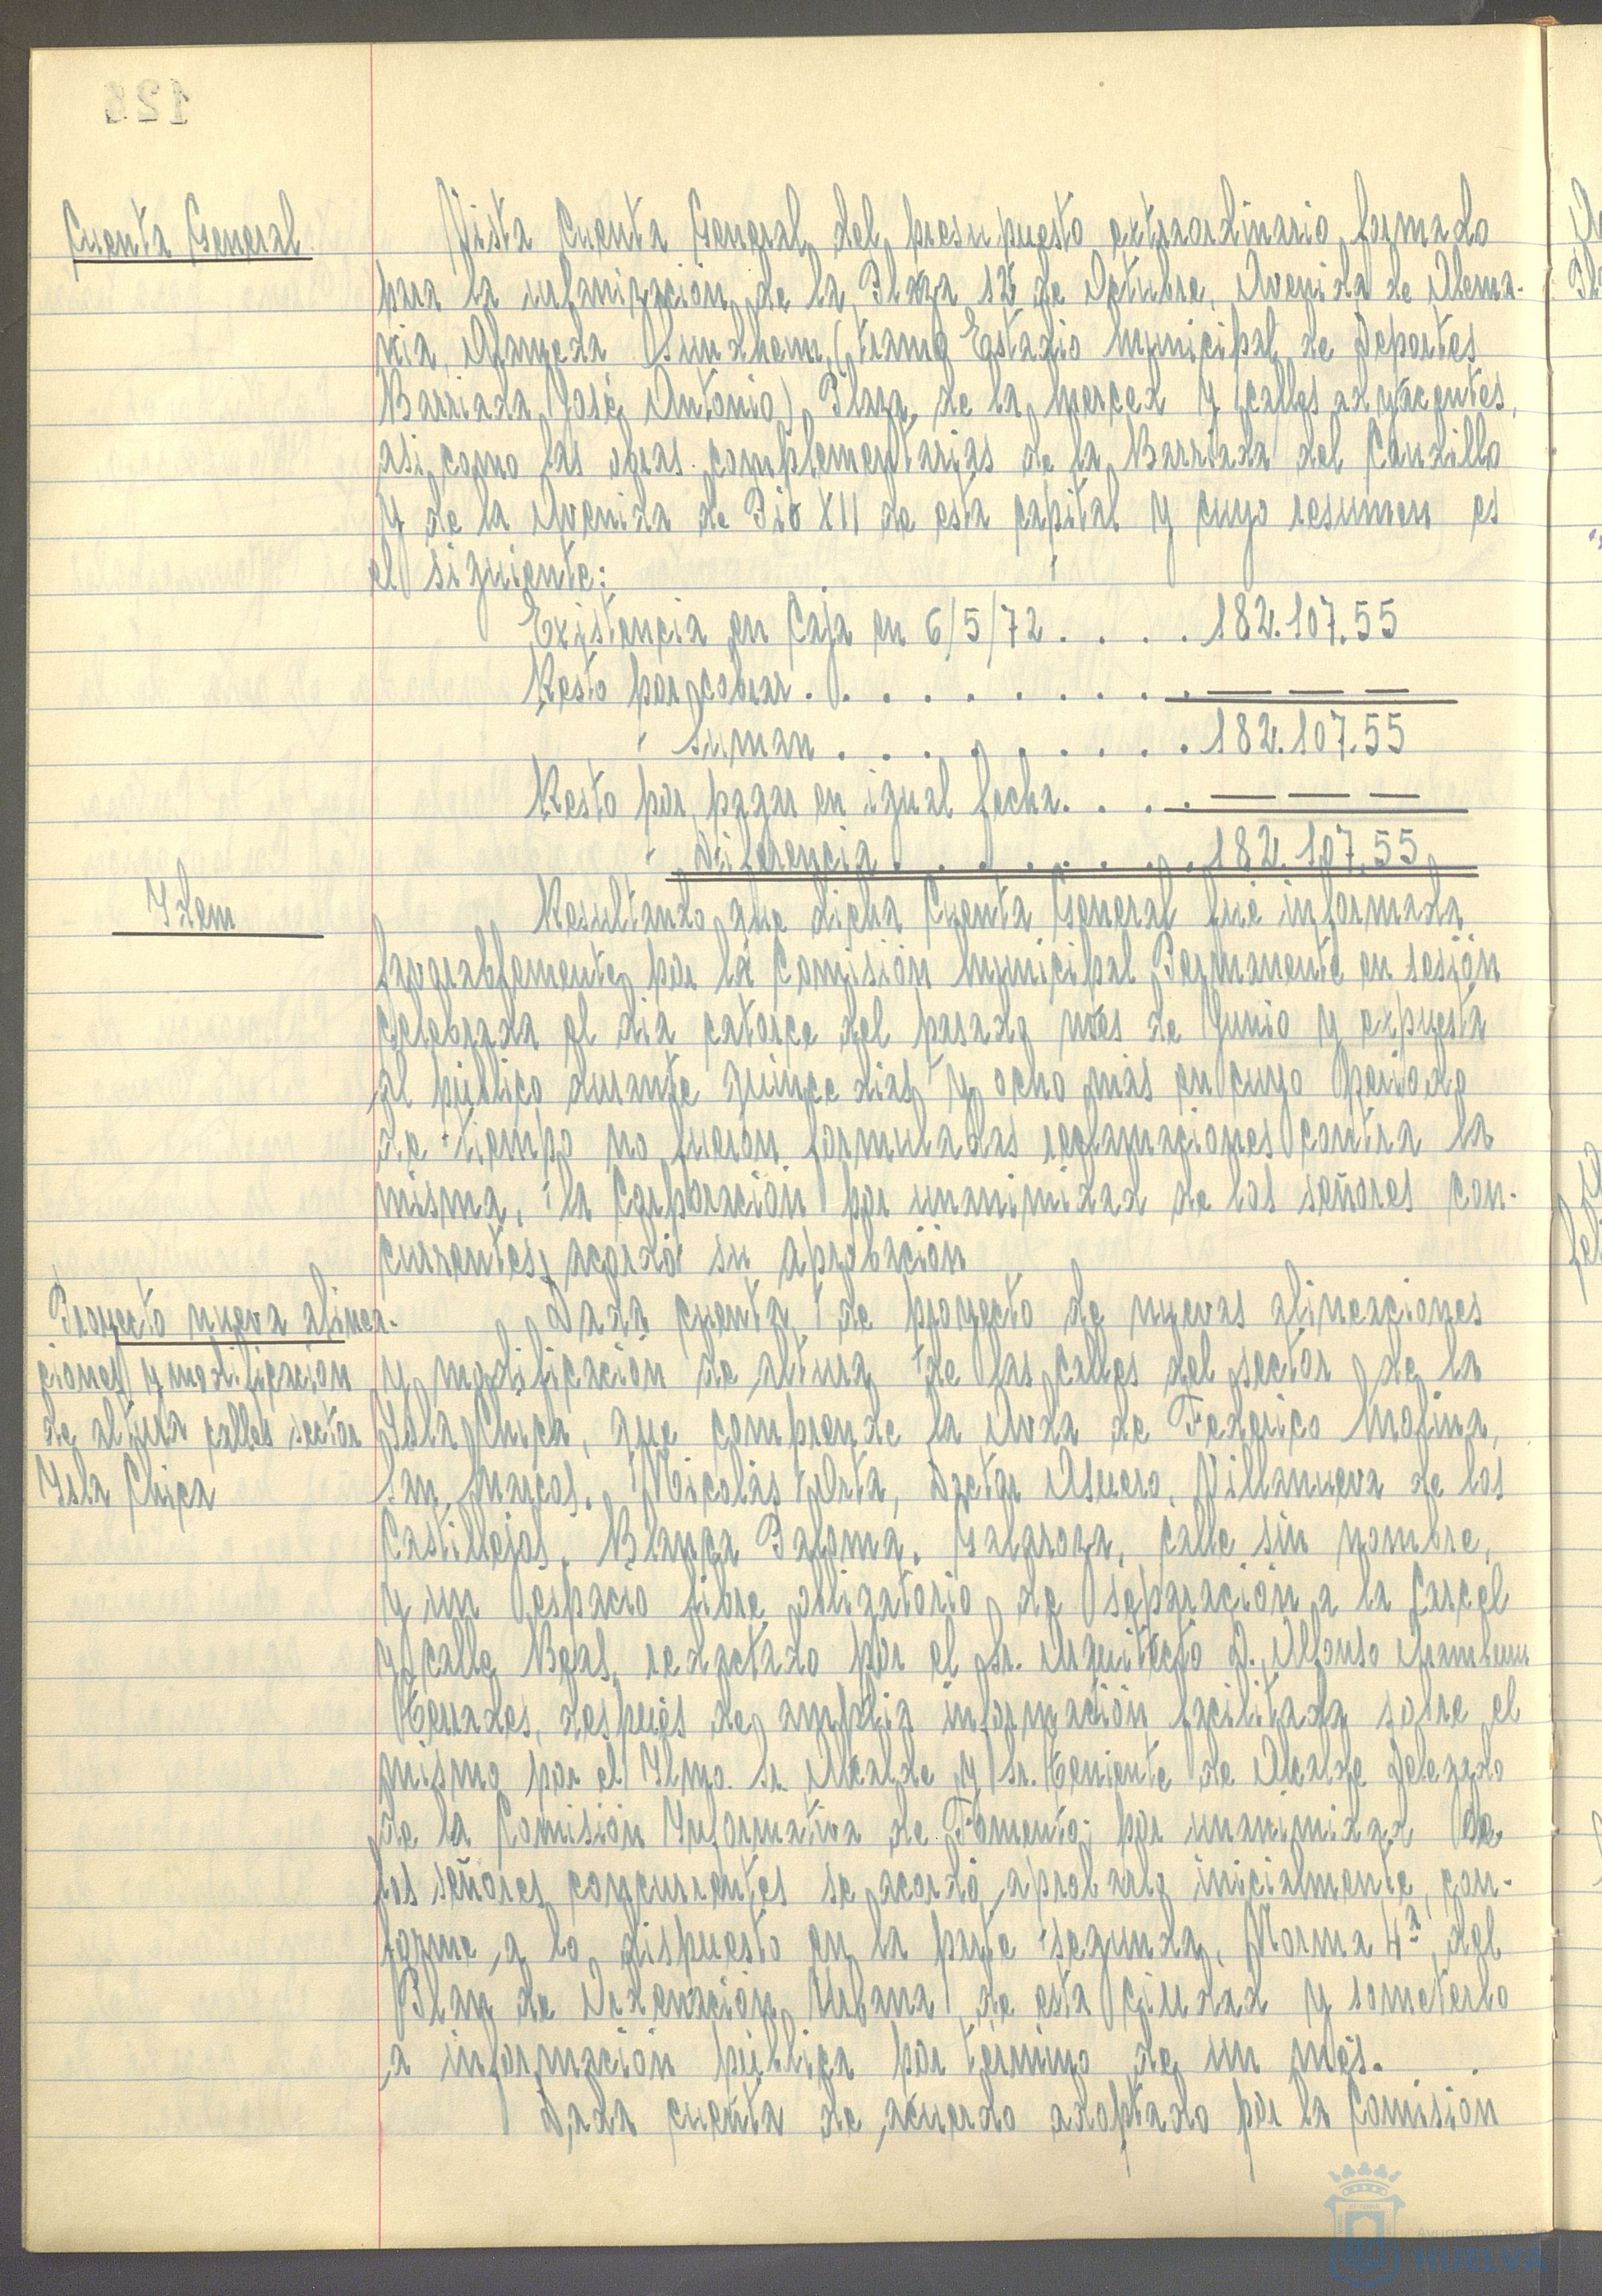 Cuenta General
Vista Cuenta General del presupuesto extraordinario formado
para la urbanización de la Plaza 12 de Octubre, Avenida de Alema-
nia, Alameda Sundheim (tramo Estadio Municipal de Deportes
Barriada José Antonio) Plaza de la Merced y calles adyacentes,
asi como las obras complementarias de la Barriada del Caudillo
y de la Avenida de Pio XII de esta capital y cuyo resumen es
el siguiente:
Existencia en Caja en 6/5/72 . . . . 182.107.55
Resto por cobrar . . . . . . . . . . — — —
Suman . . . . . . . . . 182.107.55
Resto por pagar en igual fecha. . . . — — —
Diferencia . . . . . . . . 182.107.55
Idem
Resultando que dicha Cuenta General fué informada
favorablemente por la Comisión Municipal Permanente en sesión
celebrada el dia catorce del pasado mes de Junio y expuesta
al público durante quince dias y ocho más en cuyo periodo
de tiempo no fueron formuladas reclamaciones contra la
misma, la Corporación por unanimidad de los señores con-
currentes, acordó su aprobación
Proyecto nueva alinea-
ciones y modificación
de altura calles sector
Isla Chica
Dada cuenta de proyecto de nuevas alineaciones
y modificación de altura de las calles del sector de la
Isla Chica, que comprende la Avda de Federico Molina,
San Marcos, Nicolás Orta, Doctor Asuero, Villanueva de los
Castillejos, Blanca Paloma, Galaroza, calle sin nombre,
y un espacio libre obligatorio de separación a la Carcel
y calle Beas, redactado por el Sr. Arquitecto D. Alfonso Aramburu
Terrades, después de amplia información facilitada sobre el
mismo por el Ilmo. Sr. Alcalde y Sr. Teniente de Alcalde Delegado
de la Comisión Informativa de Fomento; por unanimidad de
los señores concurrentes se acordó aprobarlo inicialmente, con-
forme a lo dispuesto en la parte segunda, Norma 4ª, del
Plan de Ordenación Urbana de esta ciudad y someterlo
a información pública por término de un mes.
Dada cuenta de acuerdo adoptado por la Comisión
Ayuntamiento de
HUELVA